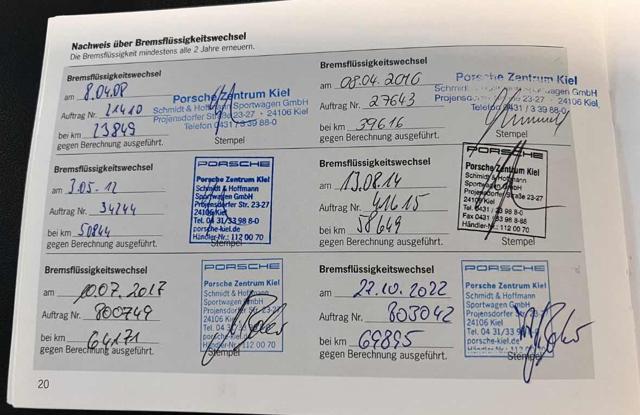 Nachweis über Bremsflüssigkeitswechsel
Die Bremsflüssigkeit mindestens alle 2 Jahre erneuern.
Bremsflüssigkeitswechsel
am 8.04.08
Auftrag Nr. 21410
bei km 23849
gegen Berechnung ausgeführt.
Porsche Zentrum Kiel
Schmidt & Hoffmann Sportwagen GmbH
Projensdorfer Straße 23-27 · 24106 Kiel
Telefon 0431 / 33 98 8-0
Stempel
Bremsflüssigkeitswechsel
am 08.04.2010
Auftrag Nr. 27643
bei km 39616
gegen Berechnung ausgeführt.
Porsche Zentrum Kiel
Schmidt & Hoffmann Sportwagen GmbH
Projensdorfer Straße 23-27 · 24106 Kiel
Telefon 0431 / 33 98 8-0
Stempel
Bremsflüssigkeitswechsel
am 3.05.12
Auftrag Nr. 34244
bei km 50844
gegen Berechnung ausgeführt.
PORSCHE
Porsche Zentrum Kiel
Schmidt & Hoffmann
Sportwagen GmbH
Projensdorfer Str. 23-27
24106 Kiel
Tel. 04 31/33 98 8-0
porsche-kiel.de
Händler-Nr.: 112 00 70
Stempel
Bremsflüssigkeitswechsel
am 13.08.14
Auftrag Nr. 41615
bei km 58649
gegen Berechnung ausgeführt.
PORSCHE
Porsche Zentrum Kiel
Schmidt & Hoffmann
Sportwagen GmbH
Projensdorfer Straße 23-27
24106 Kiel
Tel. 0431 / 33 98 8-0
Fax 0431 / 33 98 8-98
Händler-Nr.: 112 00 70
Stempel
Bremsflüssigkeitswechsel
am 10.07.2017
Auftrag Nr. 800749
bei km 64171
gegen Berechnung ausgeführt.
PORSCHE
Porsche Zentrum Kiel
Schmidt & Hoffmann
Sportwagen GmbH
Projensdorfer Str. 23-27
24106 Kiel
Tel. 04 31/33 98 8-0
porsche-kiel.de
Händler-Nr.: 112 00 70
Stempel
Bremsflüssigkeitswechsel
am 27.10.2022
Auftrag Nr. 803042
bei km 69895
gegen Berechnung ausgeführt.
PORSCHE
Porsche Zentrum Kiel
Schmidt & Hoffmann
Sportwagen GmbH
Projensdorfer Str. 23-27
24106 Kiel
Tel. 04 31/33 98 8-0
porsche-kiel.de
Händler-Nr.: 112 00 70
Stempel
20